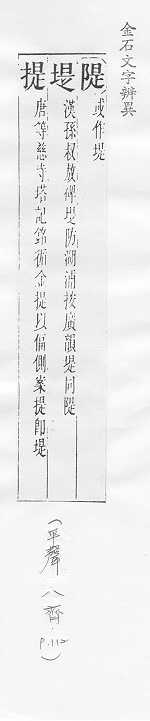 金石文字辨異
隄 或作堤
堤 漢孫叔敖碑堤防湖浦按廣韻堤同隄
提 唐等慈寺塔記銘術金提以偏側案提即堤
(平聲 八齊 P.112)